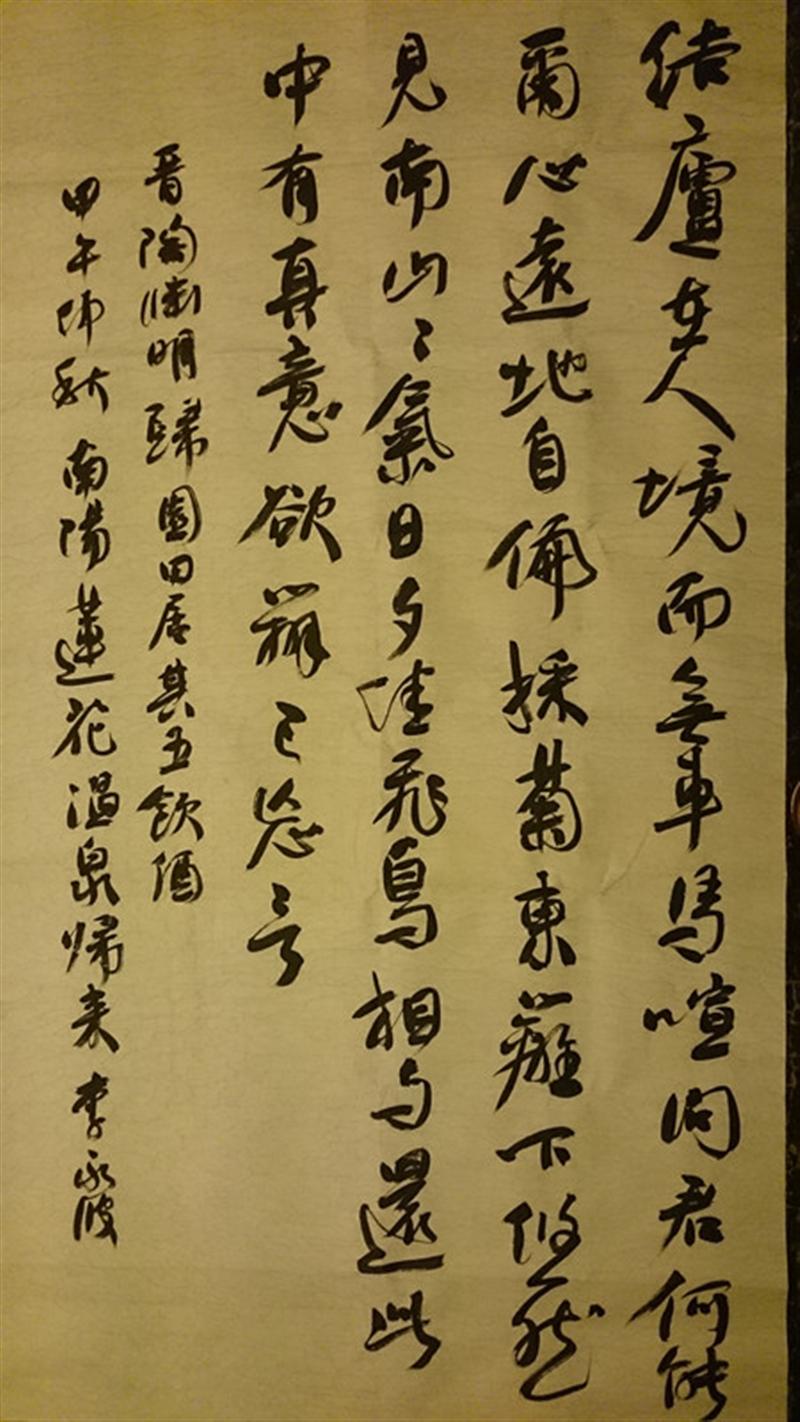 結廬在人境而無車馬喧問君何能
爾心遠地自偏採菊東籬下悠然
見南山〻氣日夕佳飛鳥相与還此
中有真意欲辯已忘言
晋陶淵明歸園田居其五飲酒
甲午仲秋南陽蓮花温泉帰来李永波